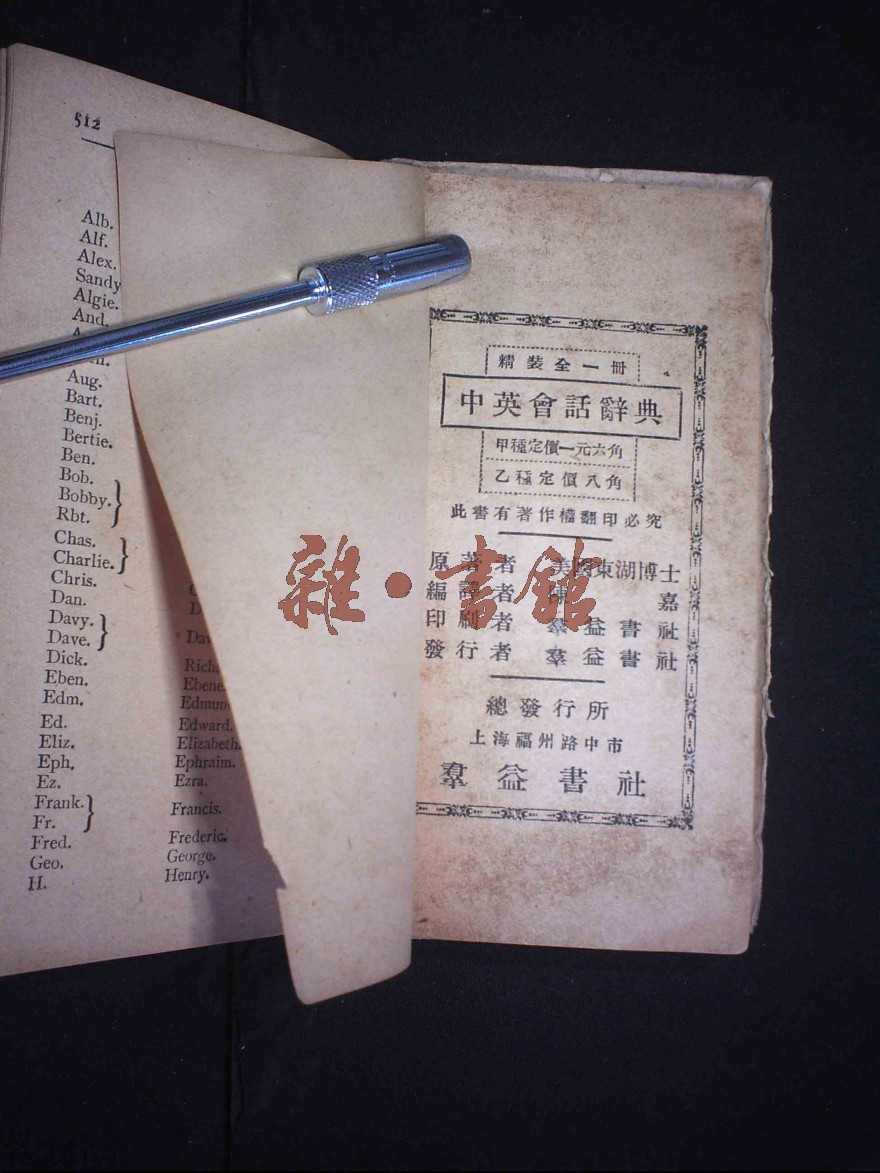 512
Alb.
Alf.
Alex.
Sandy
Algie.
And.
Aug.
Bart.
Benj.
Bertie.
Ben.
Bob.
Bobby.
Rbt.
Chas.
Charlie.
Chris.
Dan.
Davy.
Dave.
Dick.
Eben.
Edm.
Ed.
Eliz.
Eph.
Ez.
Frank.
Fr.
Fred.
Geo.
H.
Edward.
Elizabeth.
Ephraim.
Ezra.
Francis.
Frederic.
George.
Henry.
精裝全一冊
中英會話辭典
甲種定價一元六角
乙種定價八角
此書有著作權翻印必究
原著者 美國東湖博士
編譯者 陳嘉
印刷者 羣益書社
發行者 羣益書社
總發行所
上海福州路中市
羣益書社
雜·書館